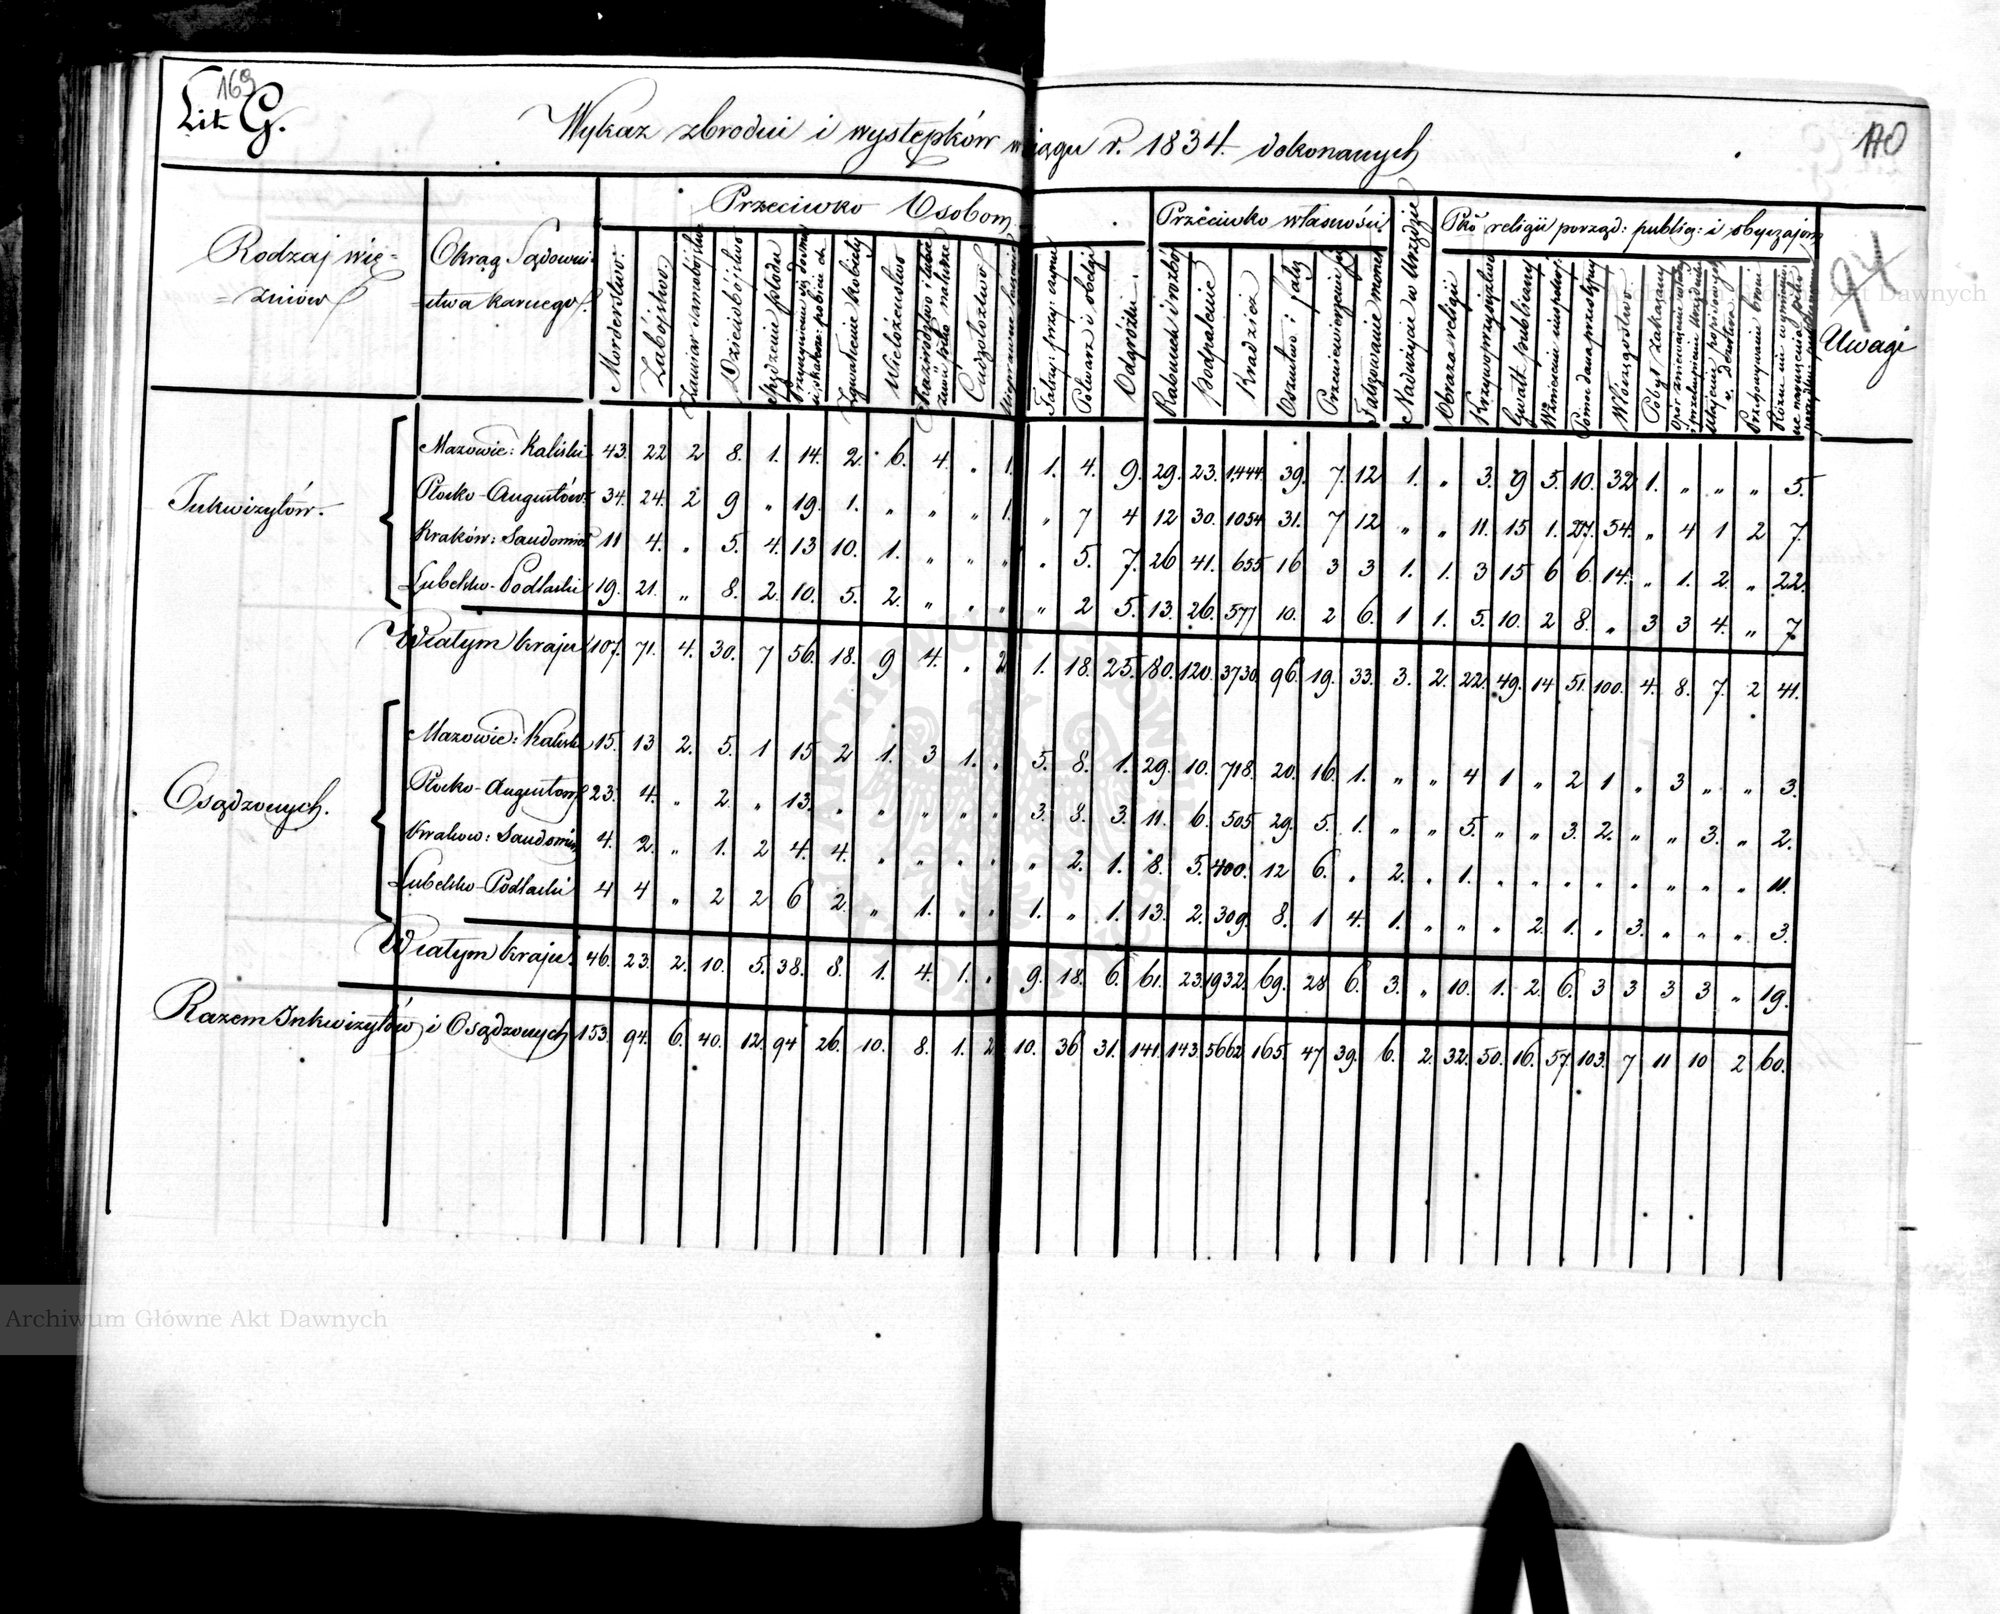 169
Lit G.
Wykaz zbrodni i występków w ciągu r. 1834. dokonanych
170
94
Rodzaj wię-
=źniów
Okrąg Sądowni-
=ctwa karnego.
Przeciwko Osobom
Przeciwko własności
Pko religii porząd: public: i obyczajom
Uwagi
Morderstwo.
Zabójstwo.
Zamiar samobójstwa
Dzieciobójstwo
Spędzenie płodu
Zgwałcenie kobiety
Wielożeństwo
Cudzołóztwo
Potwarz i obelgi
Odgróżki
Rabunek i rozbój
Podpalenie
Kradzież
Oszustwo i fałsz
Przeniewierzenie się
Fałszowanie monet
Nadużycie w Urzędzie
Obraza religii
Krzywoprzysięztwo
Gwałt publiczny
Pomoc dana przestępcy
Włóczęgostwo
Pobyt zakazany
Inkwizytów.
Mazowie: Kaliski 43. 22 2 8. 1. 14. 2. 6. 4. „ 1. 1. 4. 9. 29. 23. 1,444. 39. 7. 12 1. „ 3. 9 5. 10. 32 1. „ „ „ 5.
Płocko-Augustów. 34. 24. 2 9 „ 19. 1. „ „ „ 1. „ 7 4 12 30. 1054 31. 7 12 „ „ 11. 15 1. 27. 54. „ 4 1 2 7.
Kraków: Sandomir 11 4. „ 5. 4. 13 10. 1. „ „ „ „ 5. 7. 26 41. 655 16 3 3 1. 1. 3 15 6 6. 14. „ 1. 2. „ 22.
Lubelsko-Podlaski 19. 21. „ 8. 2. 10. 5. 2. „ „ „ „ 2 5. 13. 26. 577 10. 2 6. 1 1. 5. 10. 2 8. „ 3 3 4. „ 7.
W całym kraju 107. 71. 4. 30. 7 56. 18. 9 4. „ 2 1. 18. 25. 80. 120. 3730. 96. 19. 33. 3. 2. 22. 49. 14 51. 100. 4. 8. 7. 2 41.
Osądzonych.
Mazowie: Kalisk 15. 13 2. 5. 1 15 2 1. 3 1. „ 5. 8. 1. 29. 10. 718. 20. 16. 1. „ „ 4 1 „ 2 1 „ 3 „ „ 3.
Płocko-Augustow 23. 4. „ 2. „ 13. „ „ „ „ „ 3. 8. 3. 11. 6. 505 29. 5. 1. „ „ 5. „ „ 3. 2. „ „ 3. „ 2.
Krakow: Sandomir 4. 2. „ 1. 2 4. 4. „ „ „ „ „ 2. 1. 8. 5. 400. 12 6. „ 2. „ 1. „ „ „ „ „ „ „ „ 11.
Lubelsko-Podlaski 4 4 „ 2 2 6 2. „ 1. „ „ 1. „ 1. 13. 2. 309. 8. 1 4. 1. „ „ „ 2. 1. „ 3. „ „ „ 3.
W całym kraju. 46. 23. 2. 10. 5. 38. 8. 1. 4. 1. „ 9. 18. 6. 61. 23. 1932. 69. 28 6. 3. „ 10. 1. 2. 6. 3 3 3 3 „ 19.
Razem Inkwizytów i Osądzonych 153. 94. 6. 40. 12. 94 26. 10. 8. 1. 2 10. 36 31. 141. 143. 5662. 165. 47 39. 6. 2. 32. 50. 16. 57. 103. 7 11 10 2 60.
Archiwum Główne Akt Dawnych
Archiwum Główne Akt Dawnych